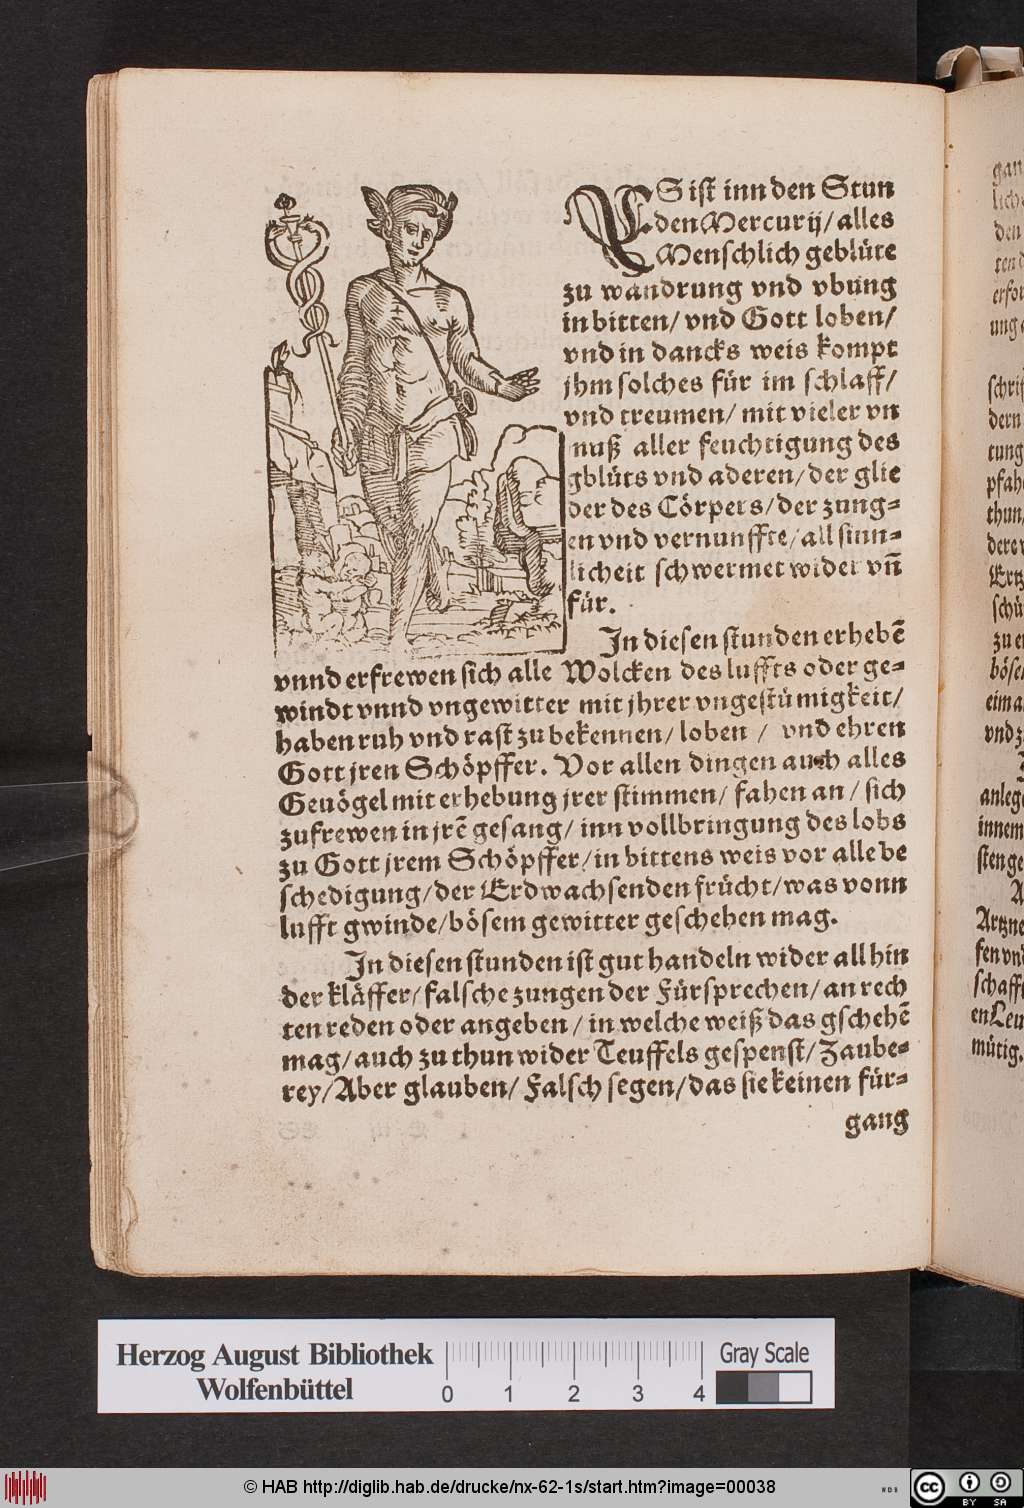 ES ist inn den Stun
den Mercurij/ alles
Menschlich geblüte
zu wandrung vnd vbung
in bitten/ vnd Gott loben/
vnd in dancks weis kompt
jhm solches für im schlaff/
vnd treumen/ mit vieler vn
nuß aller feuchtigung des
gblüts vnd aderen/ der glie
der des Cörpers/ der zung=
en vnd vernunffte/ all sinn=
licheit schwermet wider vn̄
für.
In diesen stunden erhebē
vnnd erfrewen sich alle Wolcken des luffts oder ge=
windt vnnd vngewitter mit jhrer vngestümigkeit/
haben ruh vnd rast zu bekennen/ loben / vnd ehren
Gott jren Schöpffer. Vor allen dingen auch alles
Geuögel mit erhebung jrer stimmen/ fahen an/ sich
zufrewen in jrē gesang/ inn vollbringung des lobs
zu Gott jrem Schöpffer/ in bittens weis vor alle be
schedigung/ der Erdwachsenden frücht/ was vonn
lufft gwinde/ bösem gewitter geschehen mag.
In diesen stunden ist gut handeln wider all hin
der kläffer/ falsche zungen der Fürsprechen/ an rech
ten reden oder angeben/ in welche weiß das gschehē
mag/ auch zu thun wider Teuffels gespenst/ Zaube=
rey/ Aber glauben/ Falsch segen/ das sie keinen für=
gang
gan
lich
den
ten d
erfor
ung
schrif
dern
tung
pfah
thun
dere
Ertz
schü
zu er
böse
eim a
vnd z
anleg
innem
sten ge
A
Artzne
fen vnd
schafft
en Leu
mütig.
Herzog August Bibliothek
Wolfenbüttel
0 1 2 3 4
Gray Scale
© HAB http://diglib.hab.de/drucke/nx-62-1s/start.htm?image=00038
WDB
cc BY SA